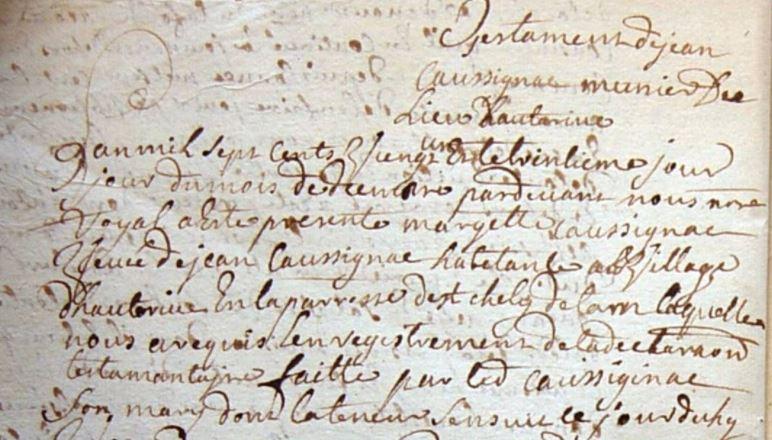 Testament de jean
Caussignac meunier du
Lieu dhauterive
Lan mil sept cents vingt un Et le vintieme jour
jour du mois de decembre pardevant nous nore
Royal a Este presente margette Caussignac
veuve de jean Caussignac habitante au village
dhauterive En la parresse de st chely de tarn laquelle
nous a requis lenregistrement de la declaraon
testamantaire faitte par led Caussiginac
son mary dont la teneur sensuit ce jourduhy